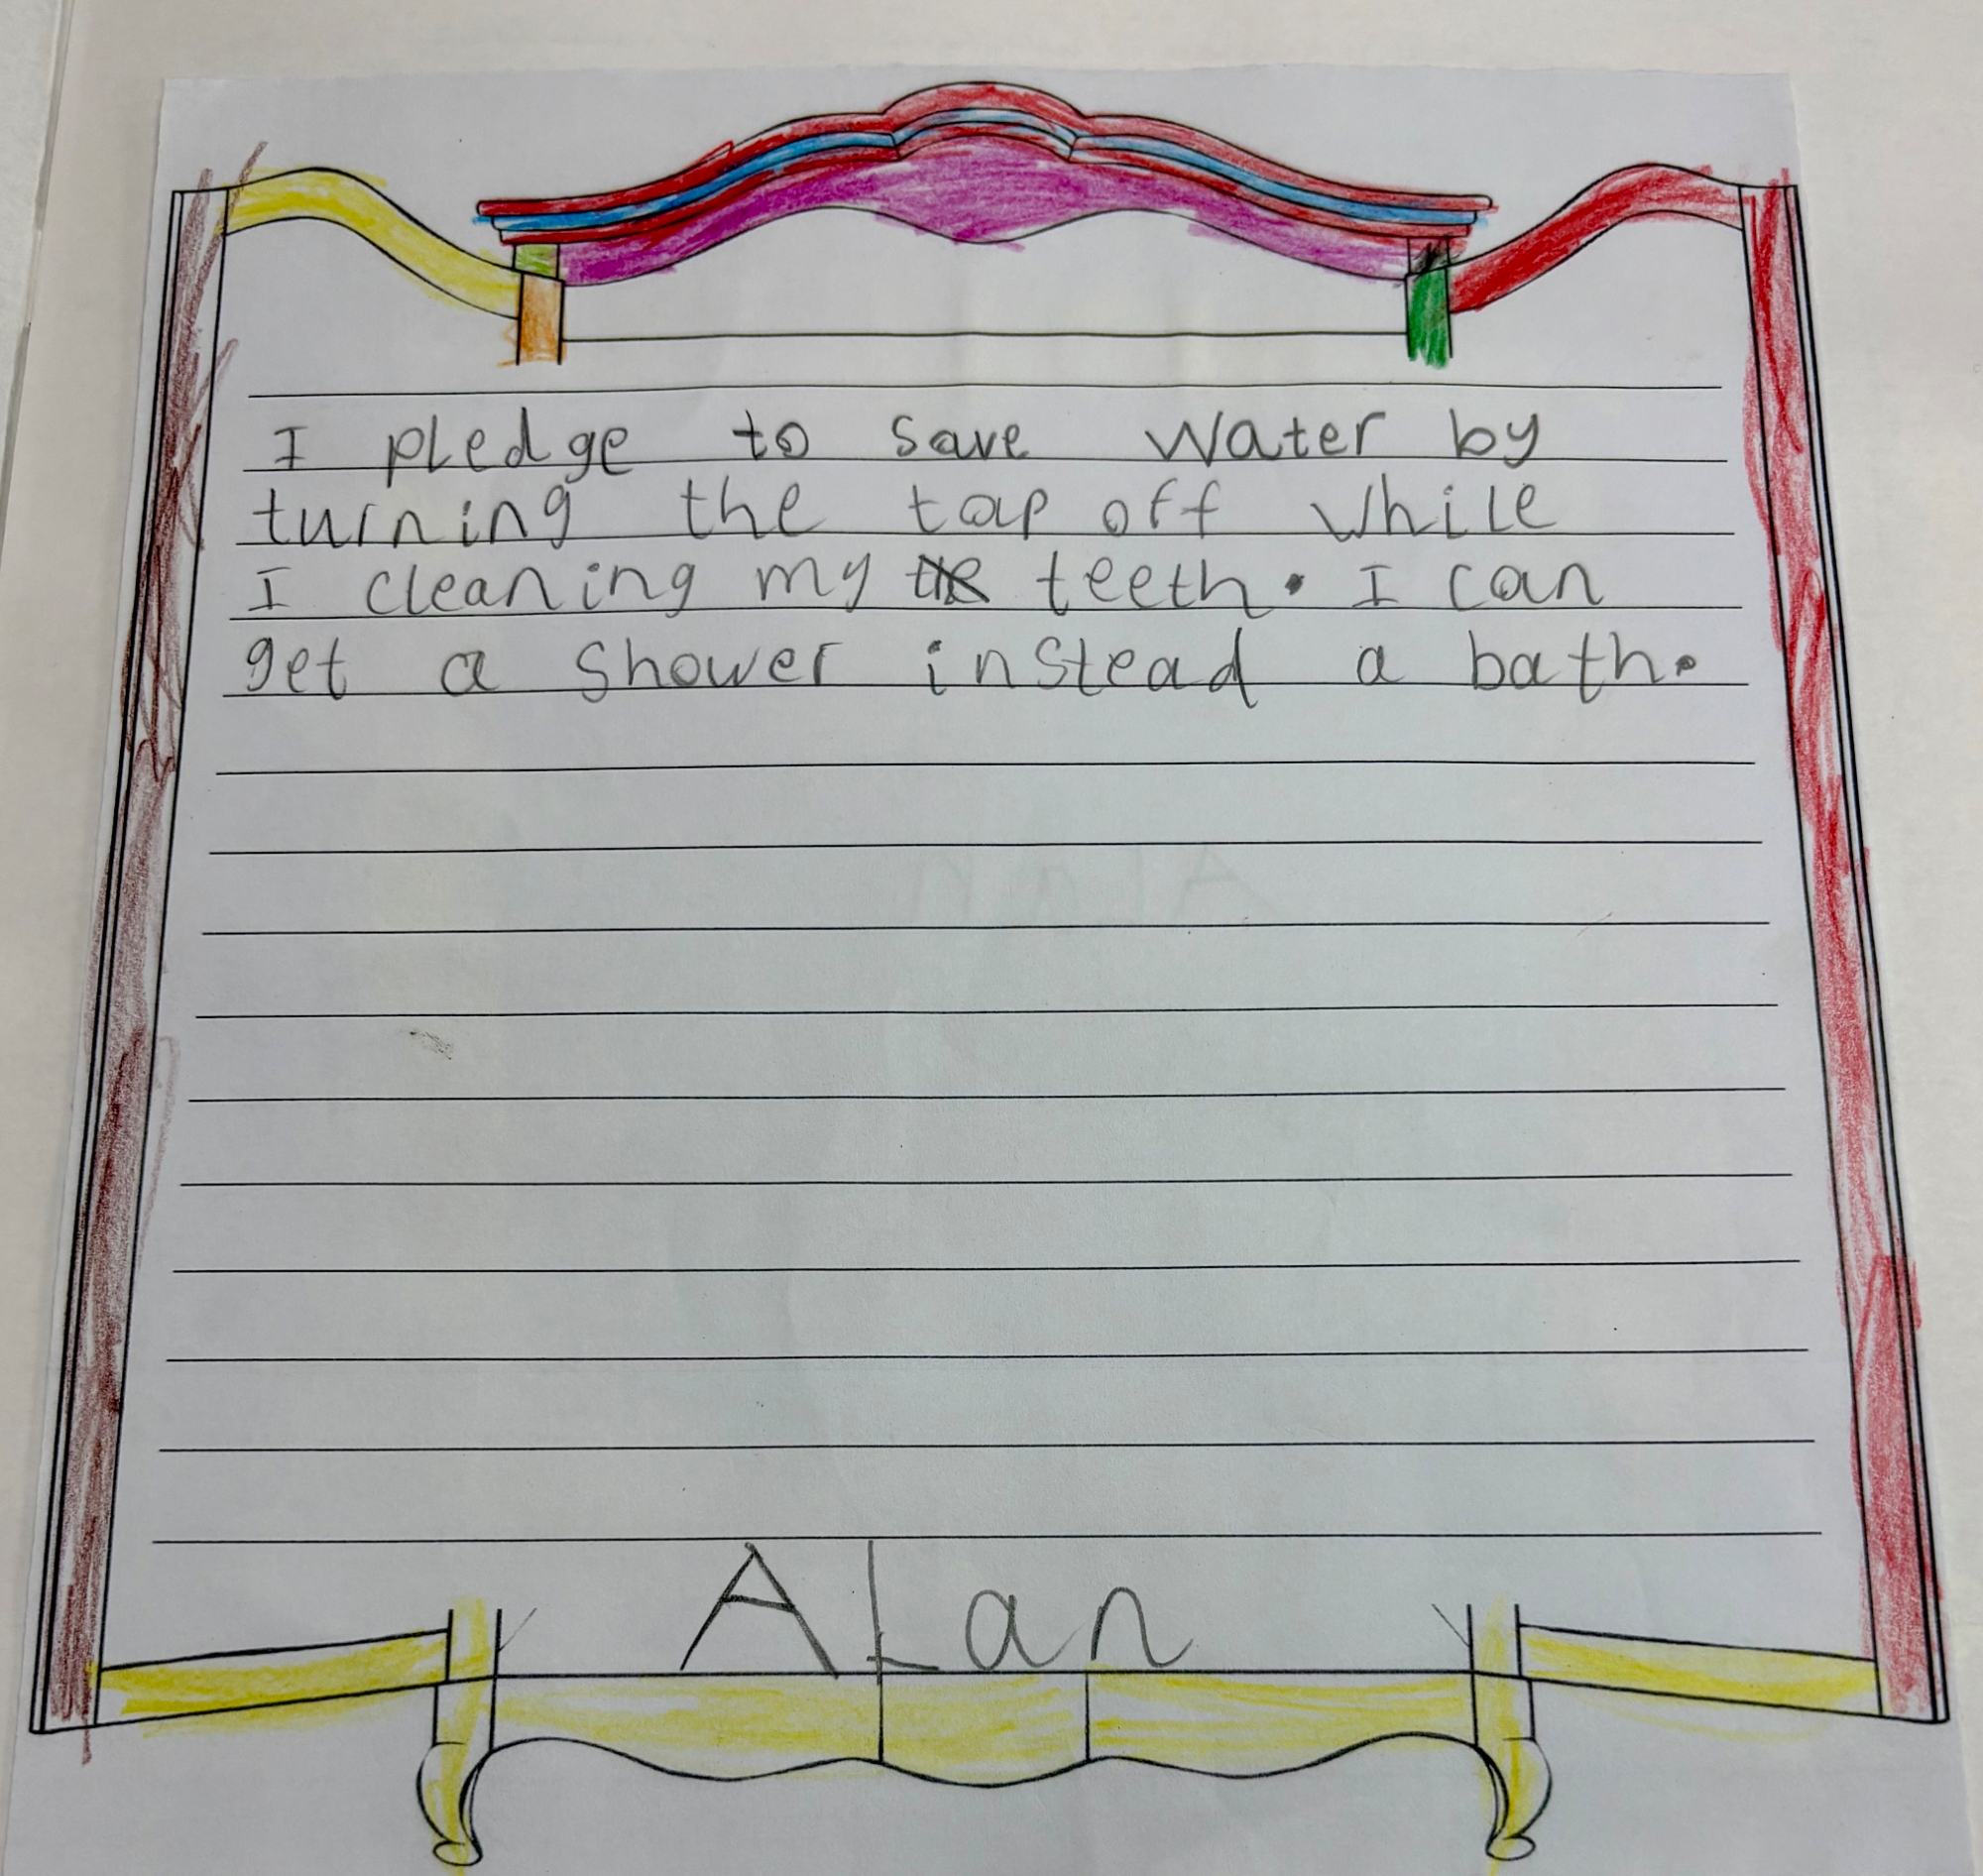 I pledge to save water by
turning the tap off while
I cleaning my teeth. I can
get a shower instead a bath.
Alan